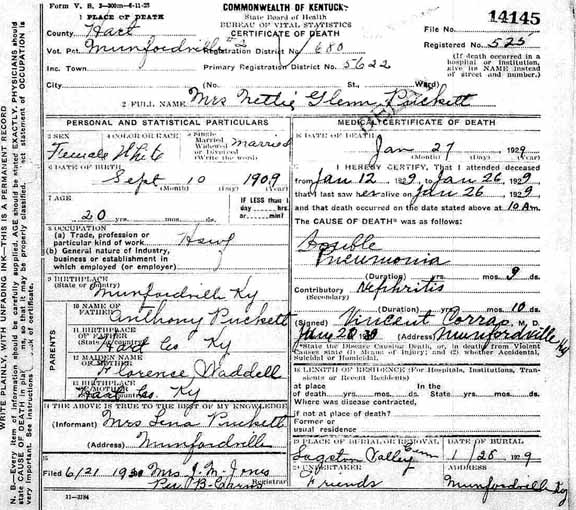 Form V. S.
COMMONWEALTH OF KENTUCKY
14145
1 PLACE OF DEATH
State Board of Health
BUREAU OF VITAL STATISTICS
County Hart
CERTIFICATE OF DEATH
File No.
Vot. Pct. Munfordville #2 Registration District No. 680
Registered No. 525
Inc. Town Primary Registration District No. 5622
(If death occurred in a hospital or institution, give its NAME instead of street and number.)
City (No. St., Ward)
2 FULL NAME Mrs Nettie Glenn Puckett
PERSONAL AND STATISTICAL PARTICULARS
3 SEX Female
4 COLOR OR RACE White
5 Single Married Widowed or Divorced (Write the word) married
6 DATE OF BIRTH
Sept 10 1909
(Month) (Day) (Year)
7 AGE
20 yrs. mos. ds.
IF LESS than 1 day hrs. or min.?
8 OCCUPATION
(a) Trade, profession or particular kind of work
(b) General nature of industry, business or establishment in which employed (or employer)
9 BIRTHPLACE
(State or country)
Munfordville Ky
PARENTS
10 NAME OF FATHER Anthony Puckett
11 BIRTHPLACE OF FATHER
Hart Co Ky
12 MAIDEN NAME OF MOTHER Florence Waddell
13 BIRTHPLACE OF MOTHER
Hart Co. Ky
14 THE ABOVE IS TRUE TO THE BEST OF MY KNOWLEDGE
(Informant) Mrs Lena Puckett
(Address) Munfordville
15
Filed 6/21 Mrs J. M. Jones
Registrar
11-3184
MEDICAL CERTIFICATE OF DEATH
16 DATE OF DEATH
Jan 27 1929
(Month) (Day) (Year)
17 I HEREBY CERTIFY, That I attended deceased
from Jan 12 1929, to Jan 26, 1929
that I last saw her alive on Jan 26 1929
and that death occurred on the date stated above at 10 Am.
The CAUSE OF DEATH* was as follows:
Possible
Pneumonia
(Duration) yrs. mos. 9 ds.
Contributory Nephritis
(Secondary)
(Duration) yrs. mos. 10 ds.
(Signed) Vincent Corrao, M. D.
(Address) Munfordville Ky
*State the Disease Causing Death, or, in deaths from Violent Causes state (1) Means of Injury; and (2) whether Accidental, Suicidal or Homicidal.
18 LENGTH OF RESIDENCE (For Hospitals, Institutions, Transients or Recent Residents)
At place of death yrs. mos. ds. In the State yrs. mos. ds.
Where was disease contracted,
if not at place of death?
Former or
usual residence
19 PLACE OF BURIAL OR REMOVAL
DATE OF BURIAL
Valley Cem 1/28 1929
20 UNDERTAKER
ADDRESS
Friends Munfordville Ky
WRITE PLAINLY, WITH UNFADING INK—THIS IS A PERMANENT RECORD
N. B.—Every item of information should be carefully supplied. AGE should be stated EXACTLY. PHYSICIANS should
state CAUSE OF DEATH in plain terms, so that it may be properly classified. Exact statement of OCCUPATION is
very important. See instructions on back of certificate.